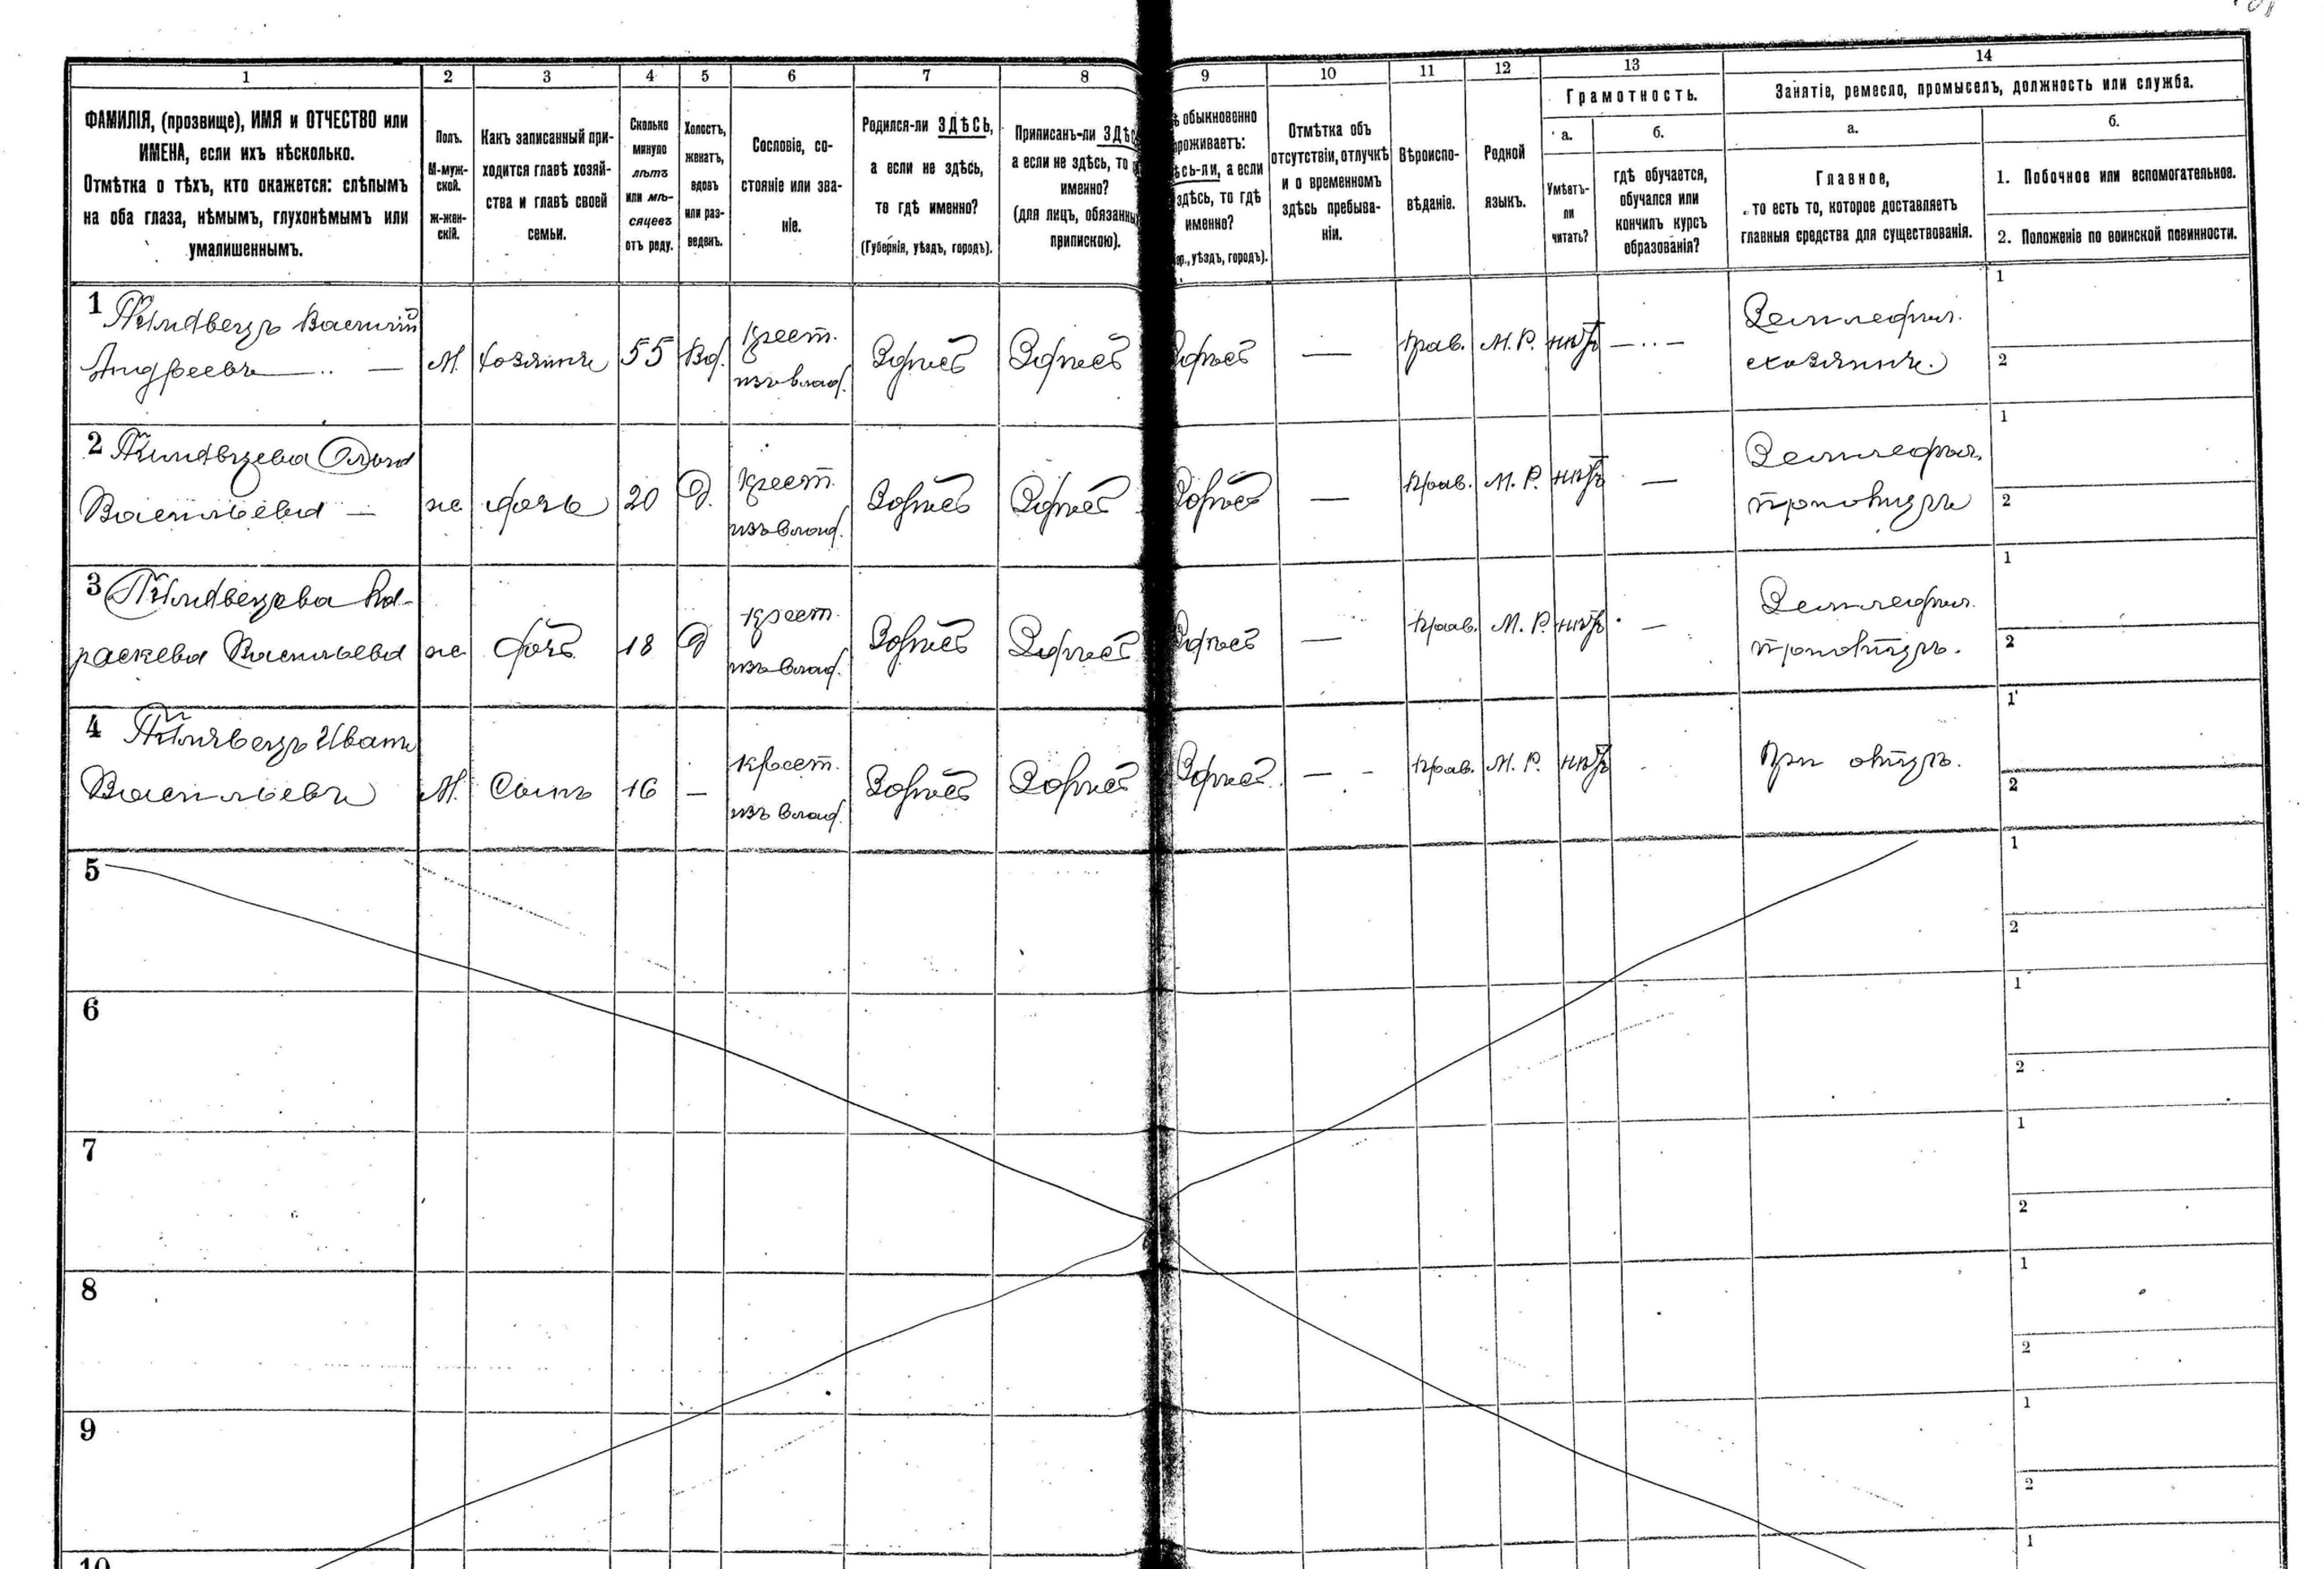 1 2 3 4 5 6 7 8 9 10 11 12 13 14
ФАМИЛІЯ, (прозвище), ИМЯ и ОТЧЕСТВО или
ИМЕНА, если ихъ нѣсколько.
Отмѣтка о тѣхъ, кто окажется: слѣпымъ
на оба глаза, нѣмымъ, глухонѣмымъ или
умалишеннымъ.
Полъ.
М-муж-
ской.
Ж-жен-
скій.
Какъ записанный при-
ходится главѣ хозяй-
ства и главѣ своей
семьи.
Сколько
минуло
лѣтъ
или мѣ-
сяцевъ
отъ роду.
Холостъ,
женатъ,
вдовъ
или раз-
веденъ.
Сословіе, со-
стояніе или зва-
ніе.
Родился-ли ЗДѢСЬ,
а если не здѣсь,
то гдѣ именно?
(Губернія, уѣздъ, городъ).
Приписанъ-ли
а если не здѣсь, то
именно?
(для лицъ, обязанны
припискою).
обыкновенно
роживаетъ:
сь-ли, а если
здѣсь, то гдѣ
именно?
уѣздъ, городъ).
Отмѣтка объ
отсутствіи, отлучкѣ
и о временномъ
здѣсь пребыва-
ніи.
Вѣроиспо-
вѣданіе.
Родной
языкъ.
Грамотность.
а.
Умѣетъ-
ли
читать?
б.
гдѣ обучается,
обучался или
кончилъ курсъ
образованія?
Занятіе, ремесло, промыселъ, должность или служба.
а.
Главное,
то есть то, которое доставляетъ
главныя средства для существованія.
б.
1. Побочное или вспомогательное.
2. Положеніе по воинской повинности.
1 Василій
Андреевъ — М. хозяинъ 55 Вд. крест. изъ влад. Здѣсь Здѣсь Здѣсь — прав. М. Р. нѣтъ — Земледѣл. хозяинъ. 1 2
2 Ольга
Васильева — ж дочь 20 д. крест. изъ влад. Здѣсь Здѣсь Здѣсь — прав. М. Р. нѣтъ — Земледѣл. при отцѣ 1 2
3 Па-
раскева Васильева ж доч 18 д крест. изъ влад. Здѣсь Здѣсь Здѣсь — прав. М. Р. нѣтъ — Земледѣл. при отцѣ. 1 2
4 Иванъ
Васильевъ М. Сынъ 16 — крест. изъ влад. Здѣсь Здѣсь Здѣсь — прав. М. Р. нѣтъ При отцѣ. 1 2
5 1 2
6 1 2
7 1 2
8 1 2
9 1 2
10 1